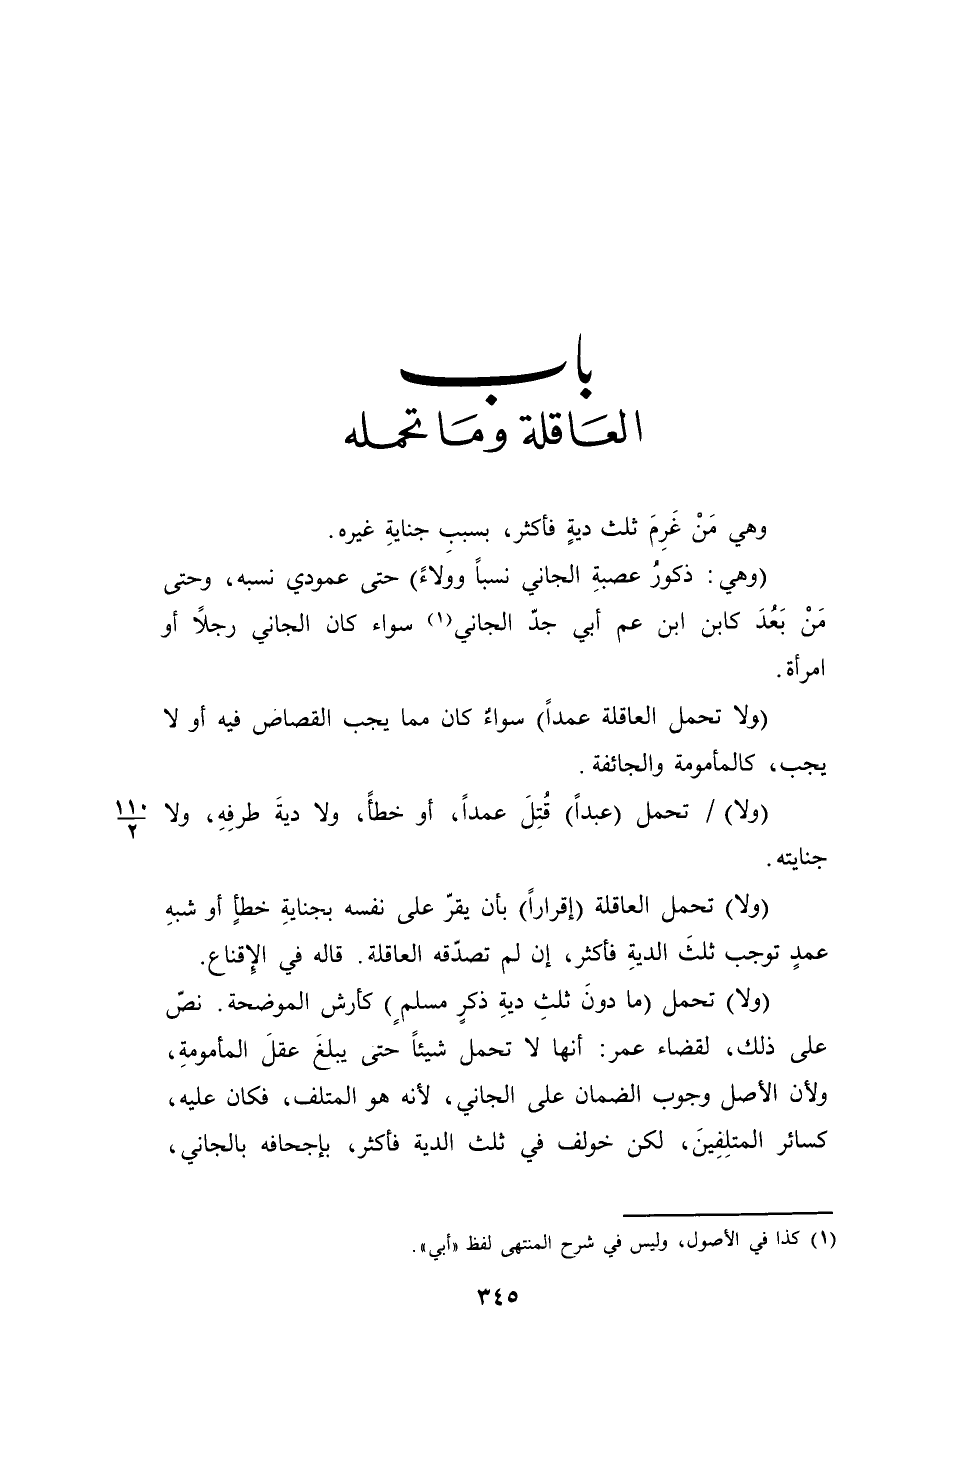 باب
العاقلة وما تحمله
وهي مَنْ غَرِمَ ثلث ديةٍ فأكثر، بسببِ جنايةِ غيره.
(وهي: ذكورُ عصبةِ الجاني نسباً وولاءً) حتى عمودي نسبه، وحتى
مَنْ بَعُدَ كابن ابن عم أبي جدّ الجاني(١) سواء كان الجاني رجلًا أو
امرأة.
(ولا تحمل العاقلة عمداً) سواءٌ كان مما يجب القصاص فيه أو لا
يجب، كالمأمومة والجائفة.
(ولا) / تحمل (عبداً) قُتِلَ عمداً، أو خطأً، ولا ديةَ طرفِهِ، ولا ١١٠/٢
جنايته.
(ولا) تحمل العاقلة (إقراراً) بأن يقرّ على نفسه بجنايةِ خطأٍ أو شبهِ
عمدٍ توجب ثلثَ الديةِ فأكثر، إن لم تصدّقه العاقلة. قاله في الإِقناع.
(ولا) تحمل (ما دونَ ثلثِ ديةِ ذكرٍ مسلمٍ) كأرش الموضحة. نصّ
على ذلك، لقضاء عمر: أنها لا تحمل شيئاً حتى يبلغَ عقلَ المأمومةِ،
ولأن الأصل وجوب الضمان على الجاني، لأنه هو المتلف، فكان عليه،
كسائر المتلِفِينَ، لكن خولف في ثلث الدية فأكثر، بإجحافه بالجاني،
(١) كذا في الأصول، وليس في شرح المنتهى لفظ «أبي».
٣٤٥